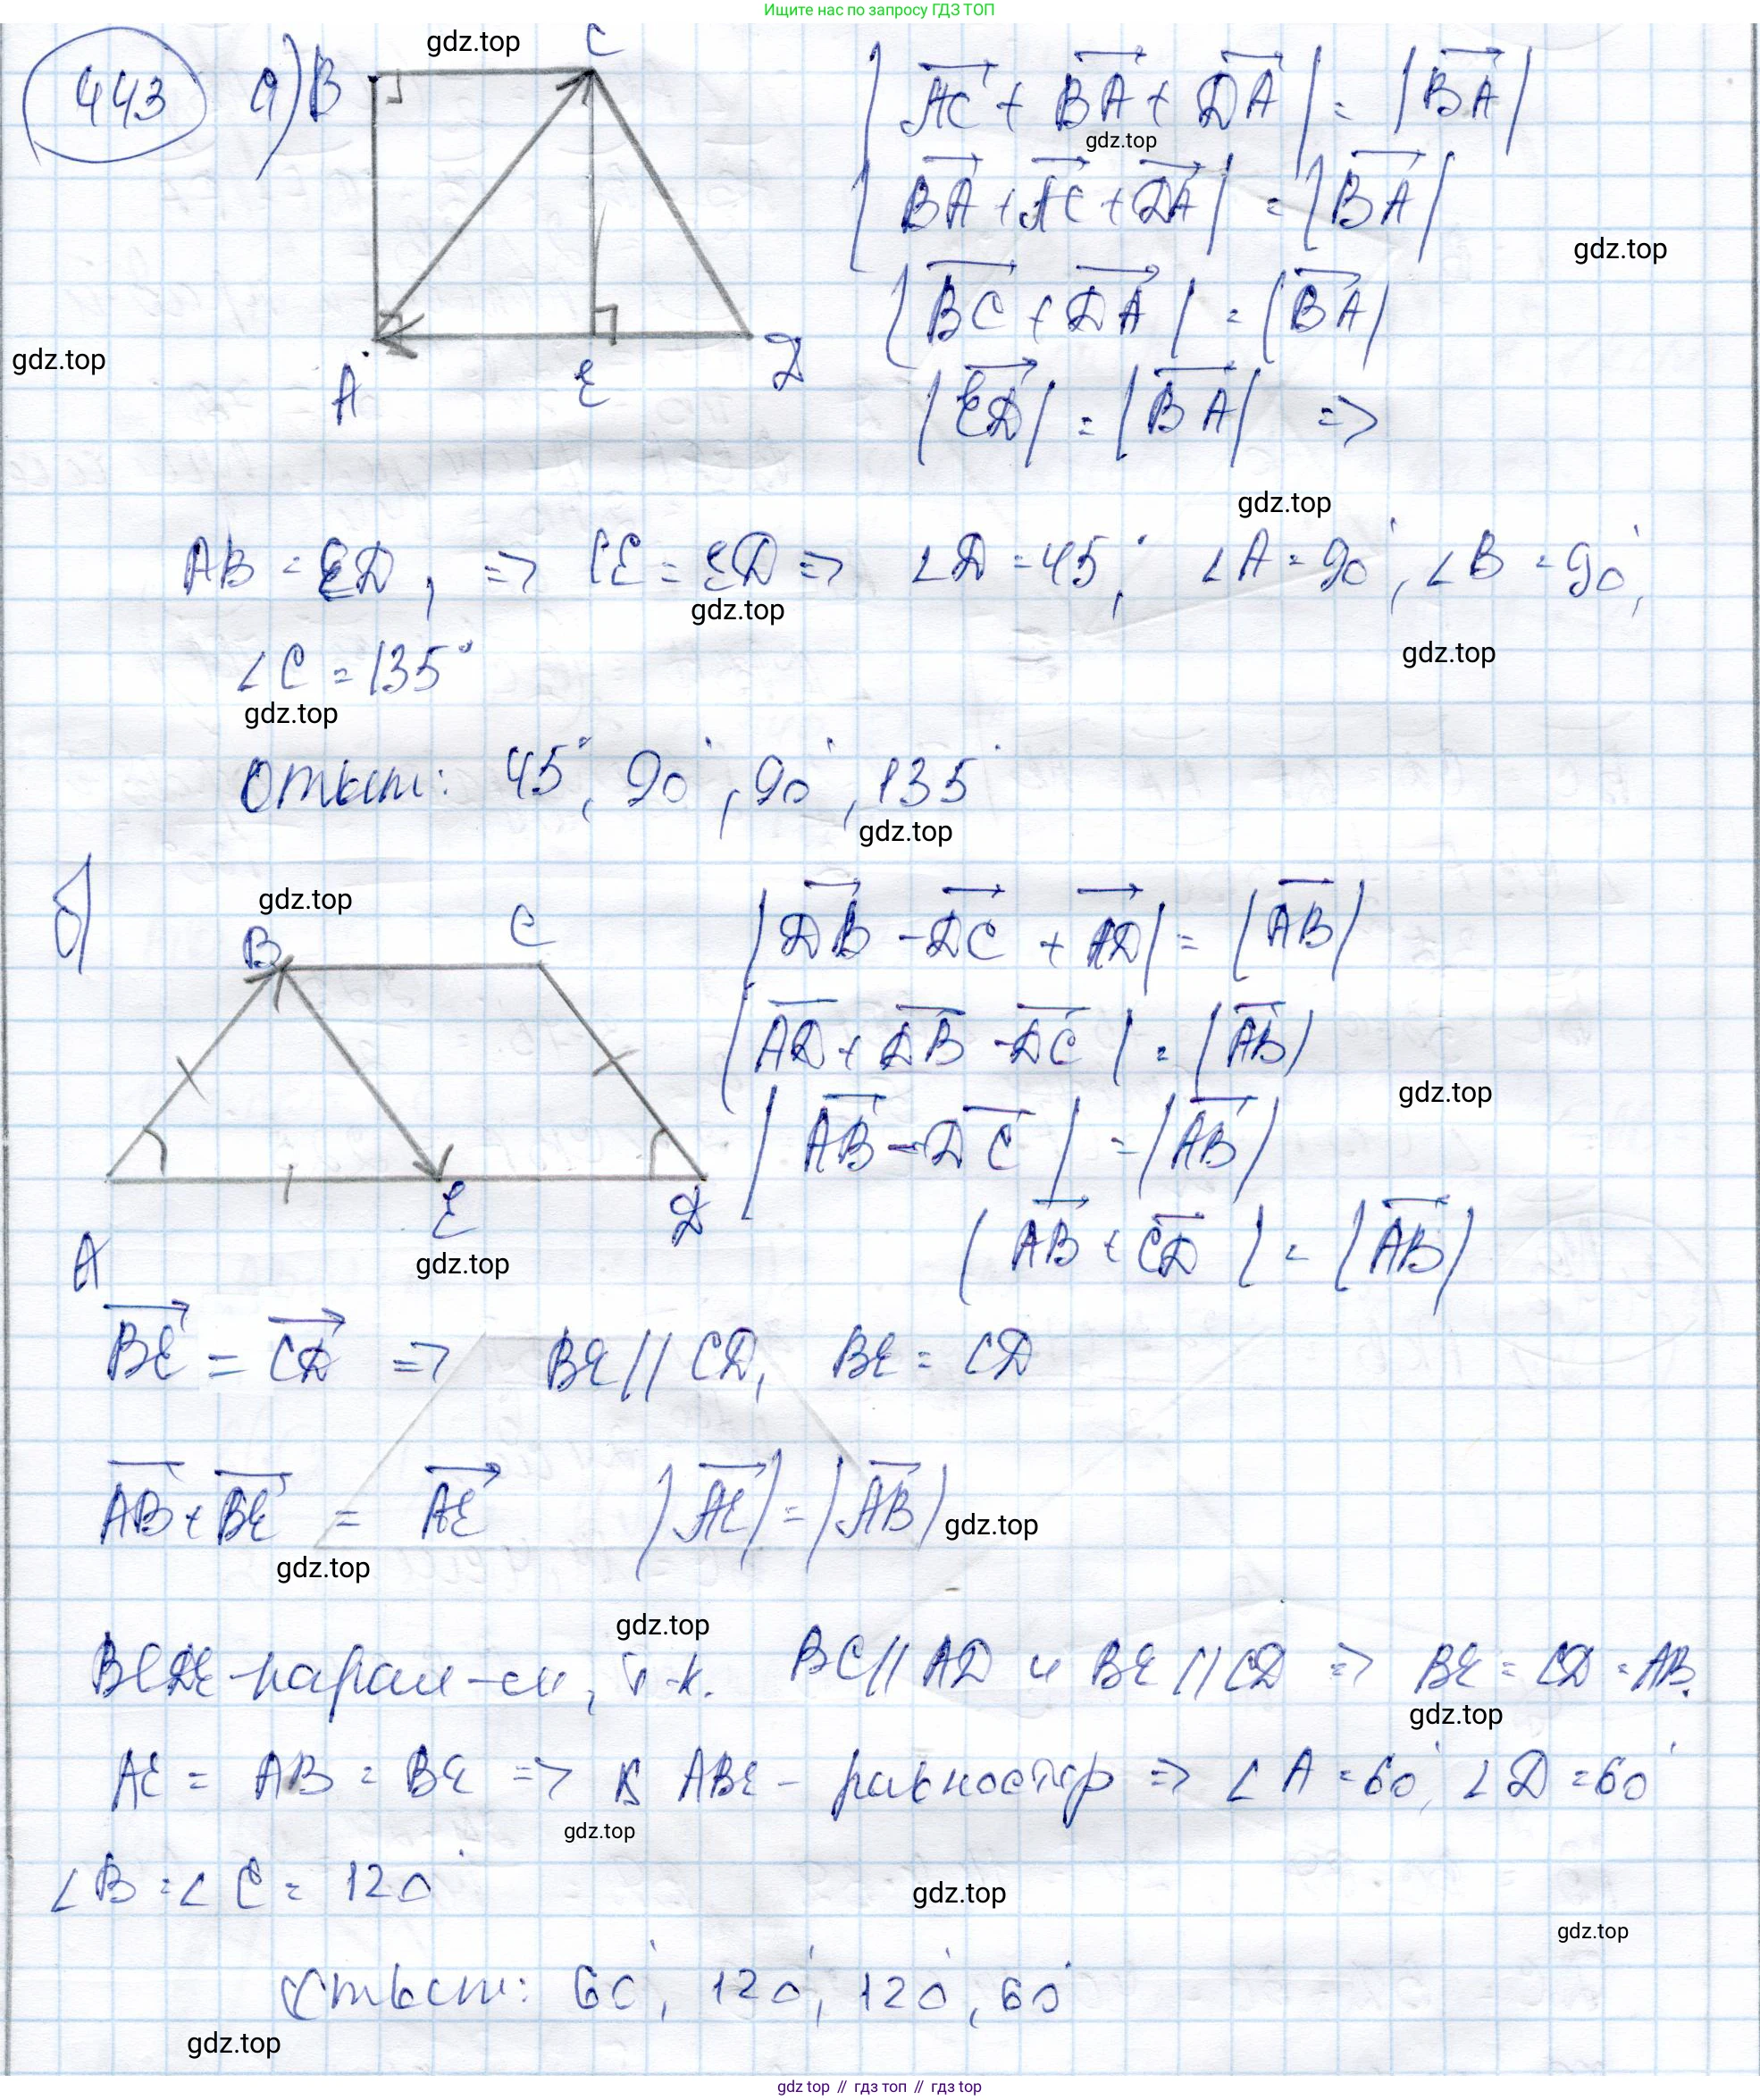 Ищите нас по запросу ГДЗ ТОП
443 а) B C
gdz.top
|AC + BA + DA| = |BA|
gdz.top
|BA + AC + DA| = |BA|
gdz.top
|BC + DA| = |BA|
gdz.top
A E D
|ED| = |BA| =>
gdz.top
AB = ED, => CE = ED => ∠D = 45°, ∠A = 90°, ∠B = 90°,
gdz.top
gdz.top
∠C = 135°
gdz.top
Ответ: 45°, 90°, 90°, 135°
gdz.top
б)
gdz.top
B C
|DB - DC + AD| = |AB|
|AD + DB - DC| = |AB|
gdz.top
|AB - DC| = |AB|
A E D
gdz.top
|AB + CD| = |AB|
BE = CD => BE || CD, BE = CD
AB + BE = AE |AE| = |AB|
gdz.top
gdz.top
gdz.top
BCDE - парал-м, т-к. BC || AD и BE || CD => BE = CD = AB.
gdz.top
AE = AB = BE => ABE - равностор => ∠A = 60°, ∠D = 60°
gdz.top
∠B = ∠C = 120°
gdz.top
gdz.top
Ответ: 60°, 120°, 120°, 60°
gdz.top
gdz top // гдз топ // гдз top